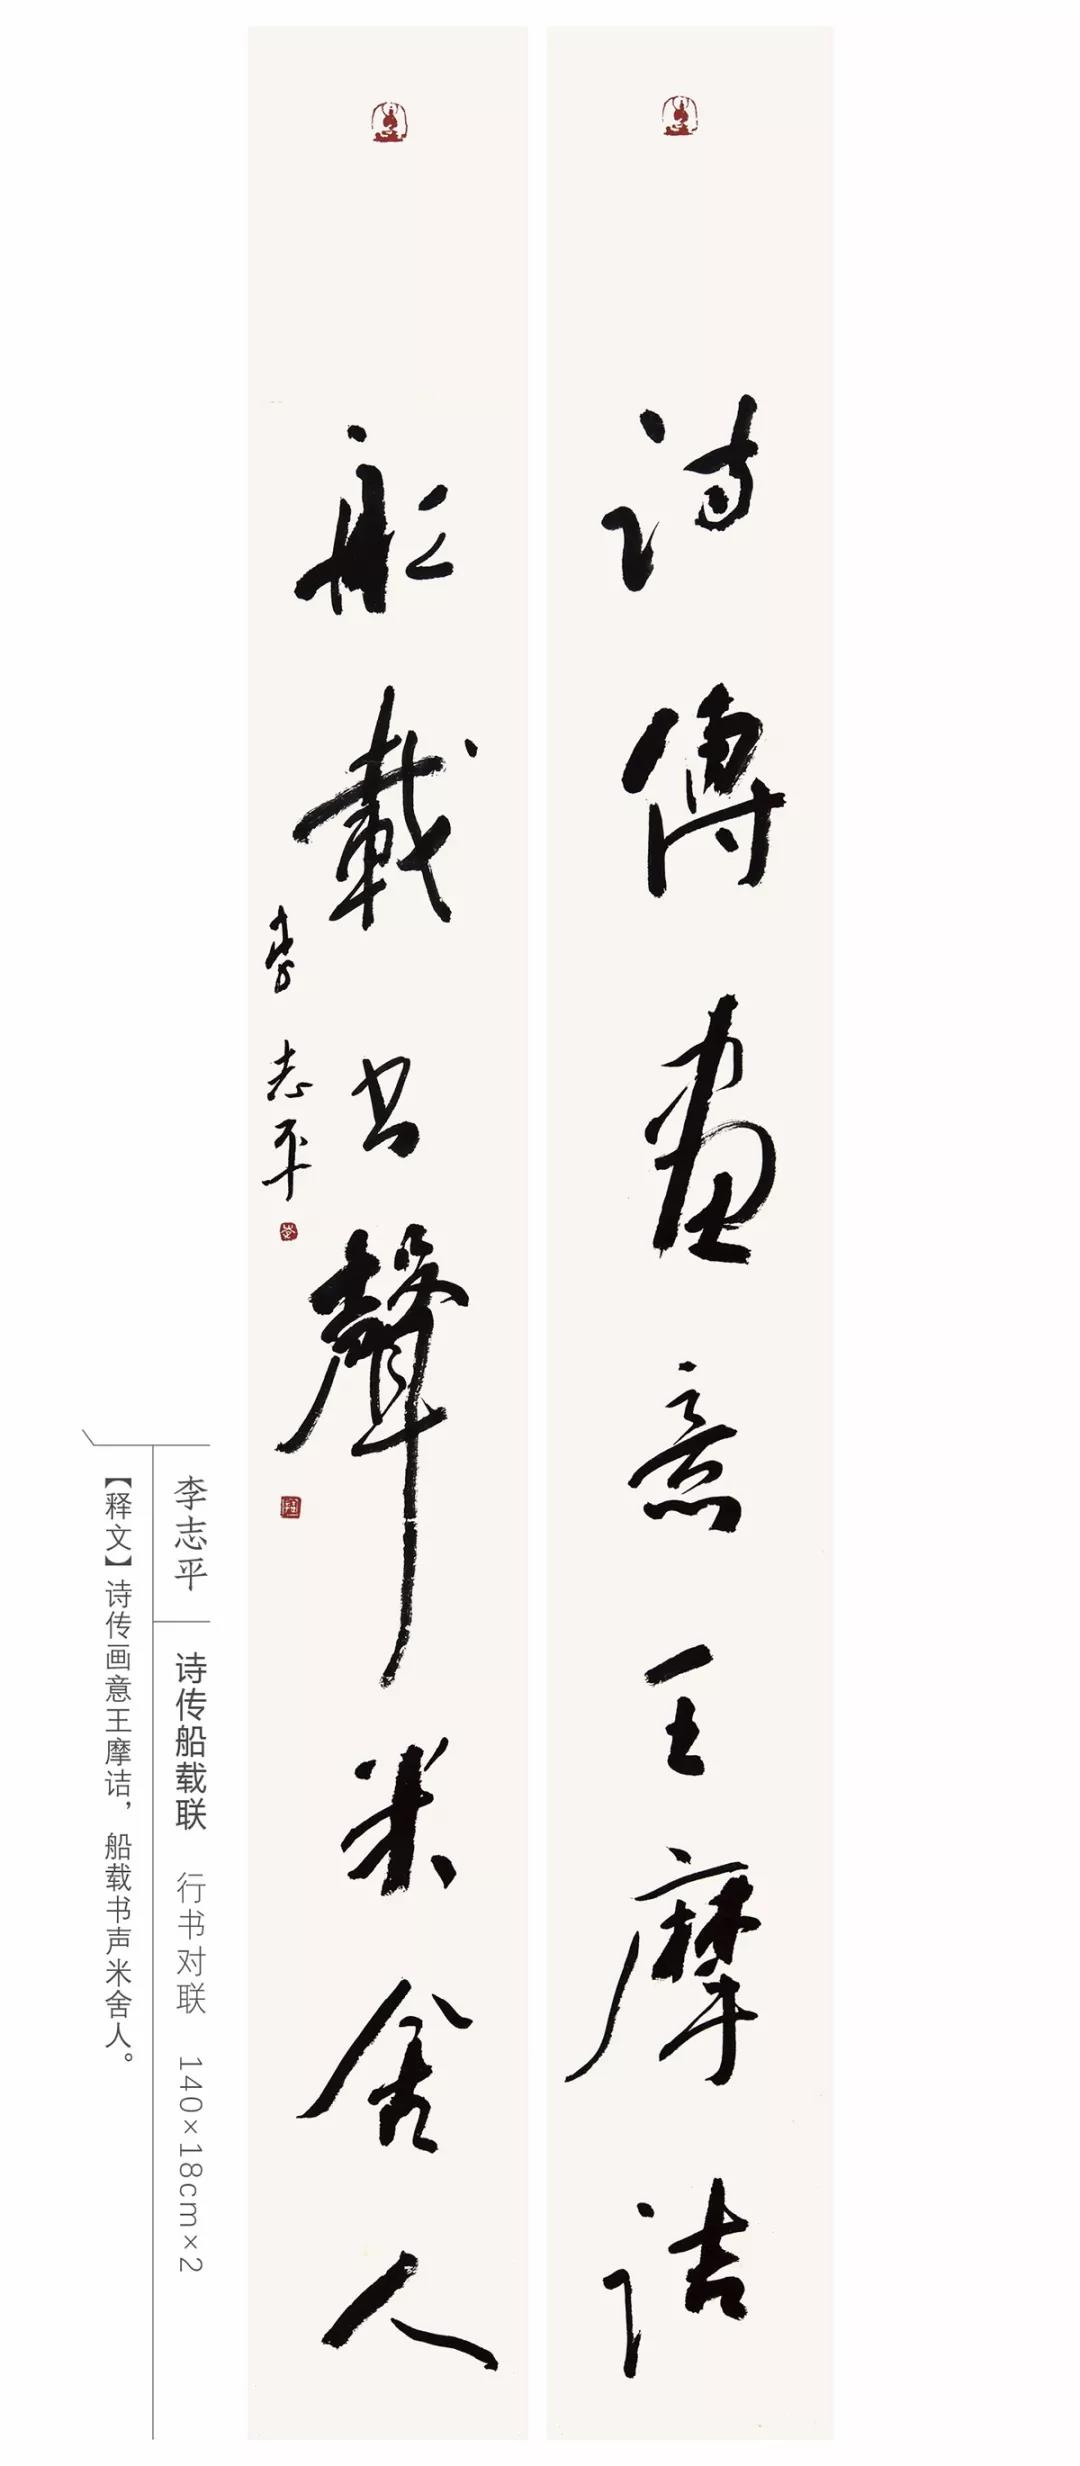 詩傳畫意王摩詰
船載书聲米舍人
李志平
李志平
诗传船载联 行书对联 140×18cm×2
【释文】诗传画意王摩诘，船载书声米舍人。